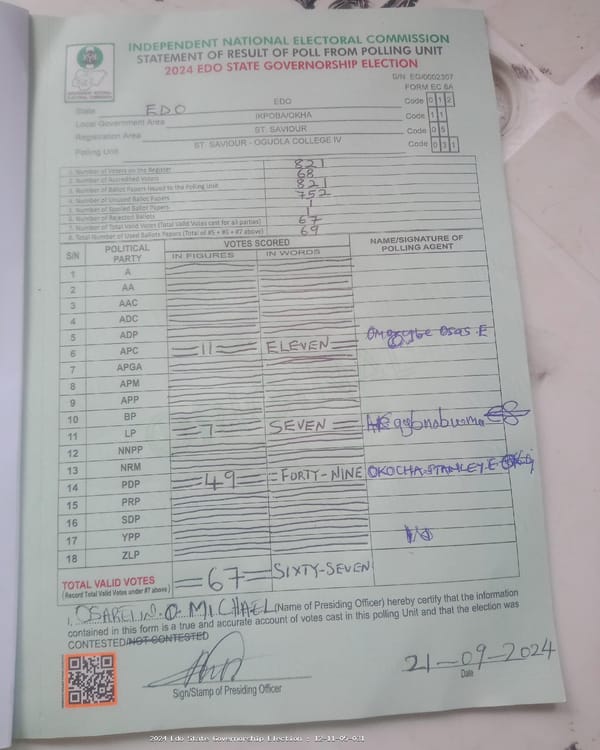 INDEPENDENT NATIONAL ELECTORAL COMMISSION
STATEMENT OF RESULT OF POLL FROM POLLING UNIT
2024 EDO STATE GOVERNORSHIP ELECTION
S/N EG/0002307
FORM EC 8A
State EDO EDO Code 0 1 2
Local Government Area IKPOBA/OKHA Code 1 1
Registration Area ST. SAVIOUR Code 0 5
Polling Unit ST. SAVIOUR - OGUOLA COLLEGE IV Code 0 3 1
1. Number of Voters on the Register 821
2. Number of Accredited Voters 68
3. Number of Ballot Papers Issued to the Polling Unit 821
4. Number of Unused Ballot Papers 752
5. Number of Spoiled Ballot Papers 1
6. Number of Rejected Ballots 1
7. Number of Total Valid Votes (Total Valid Votes cast for all parties) 67
8. Total Number of Used Ballots Papers (Total of #5 + #6 + #7 above) 69
S/N POLITICAL PARTY VOTES SCORED NAME/SIGNATURE OF POLLING AGENT
IN FIGURES IN WORDS
1 A
2 AA
3 AAC
4 ADC
5 ADP
6 APC 11 ELEVEN Osas .E
7 APGA
8 APM
9 APP
10 BP
11 LP 7 SEVEN
12 NNPP
13 NRM
14 PDP 49 FORTY-NINE OKOCHA STANLEY.E
15 PRP
16 SDP
17 YPP
18 ZLP
TOTAL VALID VOTES 67 SIXTY-SEVEN
(Record Total Valid Votes under #7 above)
I, O. MICHAEL (Name of Presiding Officer) hereby certify that the information
contained in this form is a true and accurate account of votes cast in this polling Unit and that the election was
CONTESTED/NOT CONTESTED
21-09-2024
Sign/Stamp of Presiding Officer Date
2024 Edo State Governorship Election : 12-11-05-031